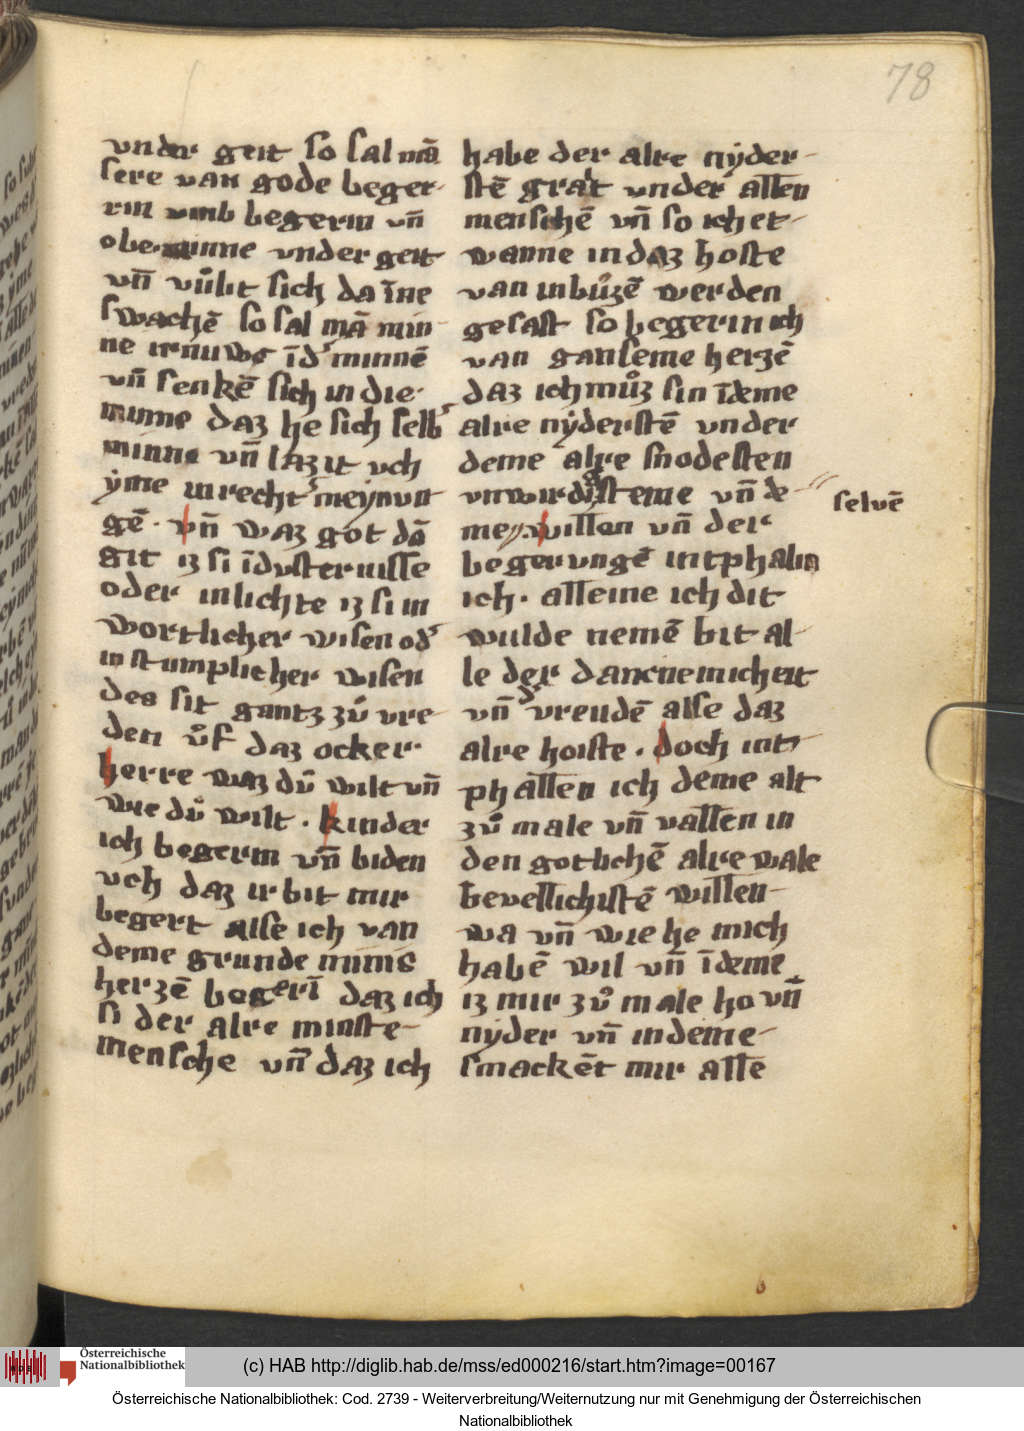 78
vnder geit so sal mā
sere van gode beger-
rin vmb begerin vn̄
obe minne vnder geit
vn̄ vu̇bt sich da īne
swachē so sal mā min
ne īdˢ minnē
vn̄ senkē sich in die
minne daz he sich selbˢ
minne vn̄ laz it vch
ẏme in rechtˢ meẏnvn
gē · vn̄ waz got dā
git iz si īdvsternisse
oder in lichte iz si in
wortlicher wisen odˢ
in stumplicher wisen
des sit gantz zů vre
den ůf daz ocker·
herre waz dů wilt vn̄
wie dů wilt · kinder
ich begerin vn̄ biden
vch daz ir bit mir
begert alse ich van
deme grunde mīnˢ
herzē begerī daz ich
si der alre minste-
mensche vn̄ daz ich
habe der alre nẏder-
stē grat vnder allen
menschē vn̄ so ich et-
wanne in daz hoste
van inbůzē werden
gesast so begerin ich
van ganseme herzē
daz ich můz sin īdeme
alre nẏderstē vnder
deme alre snodesten
vnwirdigsteme vn̄ de-
selvē
me willen vn̄ der
begerungē intphalin
ich · alleine ich dit
wulde nemē bit al-
le der dancnemicheit
vn̄ dˢ vreudē alse daz
alre hoiste · doch int-
phallen ich deme alt
zů male vn̄ vallen in
den gotlichē alre wale
bevellichistē willen-
wa vn̄ wie he mich
habē wil vn̄ īdeme
iz mir zů male ho vn̄
nẏder vn̄ indeme-
smackēt mir alle
Österreichische
Nationalbibliothek
(c) HAB http://diglib.hab.de/mss/ed000216/start.htm?image=00167
Österreichische Nationalbibliothek: Cod. 2739 - Weiterverbreitung/Weiternutzung nur mit Genehmigung der Österreichischen
Nationalbibliothek